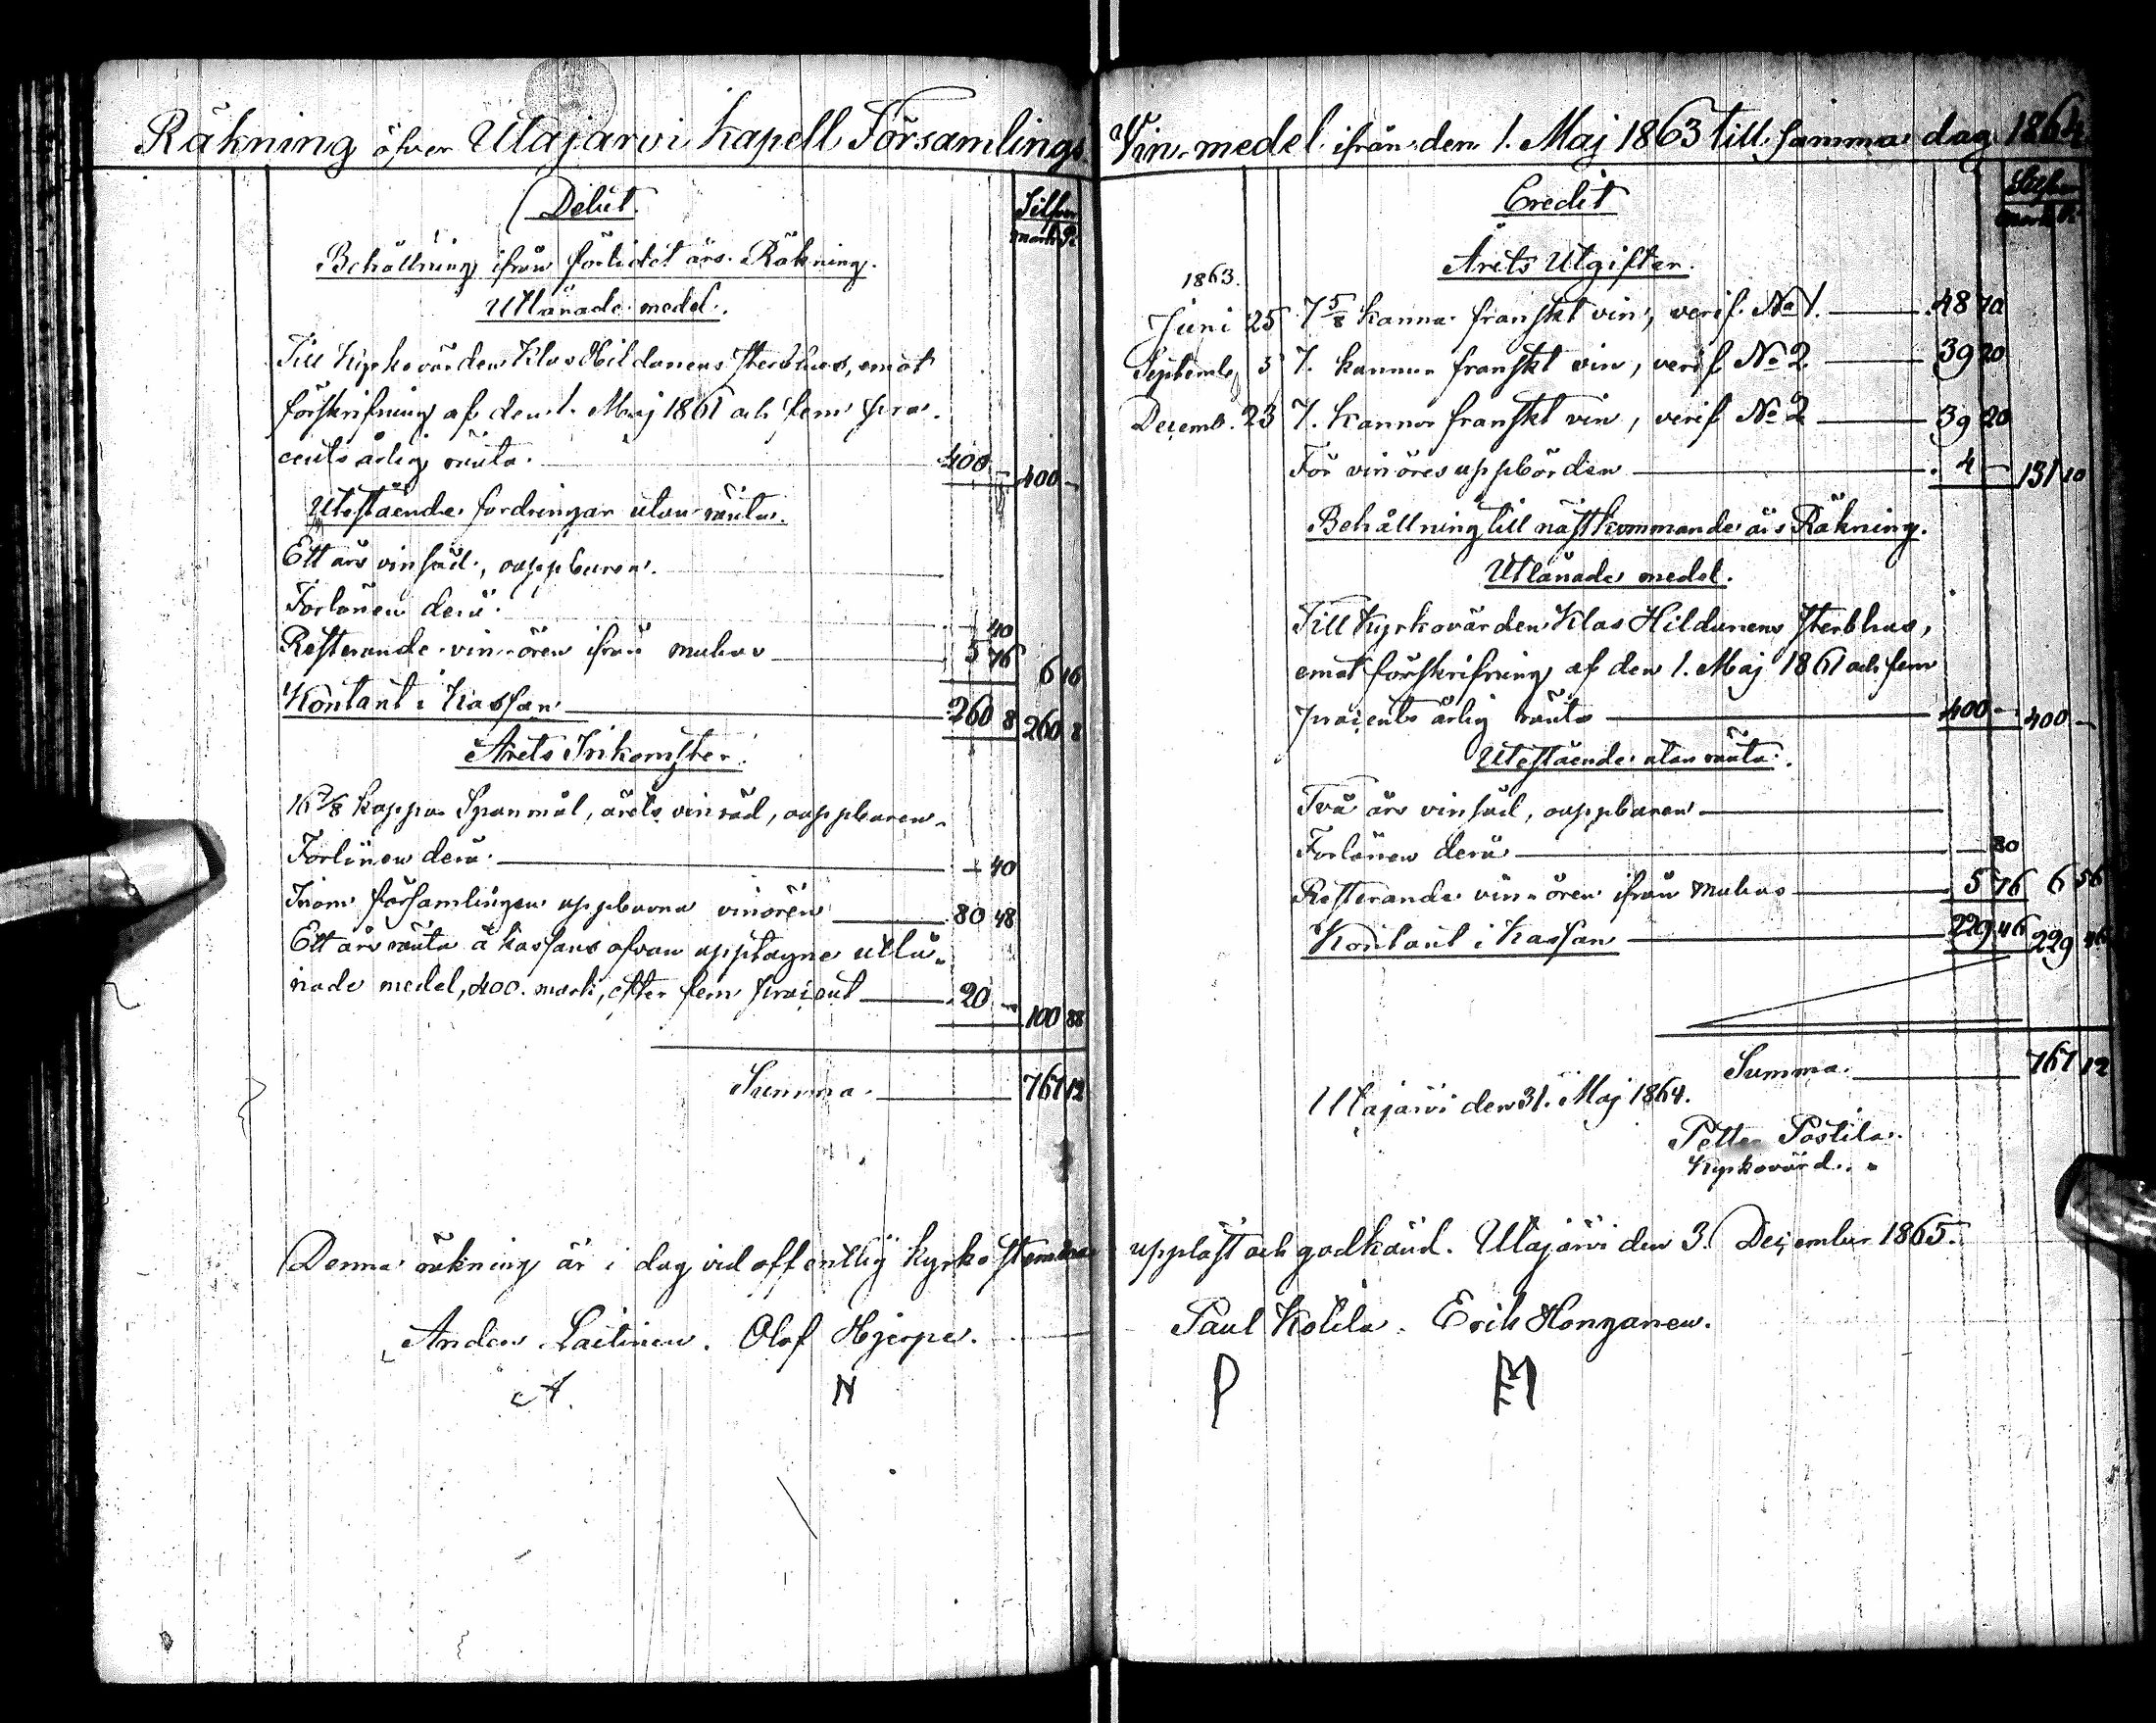 Räkning öfver Utajärvi Kapell Församlings
Debet.
Silfver
mark Pi
Behållning ifrån förlidet års Räkning.
Utlånade medel.
Till Kyrkovärden Klas Hildunens Sterbhus, emot
förskrifning af den 1. Maj 1861 och fem pro-
cents årlig ränta. 400 — 400 —
Utestående fordringar utan ränta.
Ett års vinsäd, ouppburen.
Forlönen derå. — 40
Resterande vin-ören ifrån Muhos 5 76 6 16
Kontant i Kassan 260 8 260 8
Årets Inkomster.
16 7/8 kappa Spanmål, årets vinsäd, ouppburen.
Forlönen derå. — 40
Inom församlingen uppburna vinören 80 48
Ett års ränta å kassans ofvan upptagne utlå-
nade medel, 400. mark, efter fem procent 20 — 100 88
Summa. 767 12
Denna räkning är i dag vid offentlig kyrkostämma
Anders Laitinen. Olof Hjerpe.
A. N
Vin-medel ifrån den 1. Maj 1863 till samma dag 1864
Credit
Silfver
mark Pi
Årets Utgifter.
1863.
Juni 25 7 5/8 kanna franskt vin, verif. No 1. 48 70
Septemb. 5 7. kannor franskt vin, verif No 2. 39 20
Decemb. 23 7. kannor franskt vin, verif No 2 39 20
För vinöres uppbörden 4 — 131 10
Behållning till nästkommande års Räkning.
Utlånade medel.
Till Kyrkovärden Klas Hildunens Sterbhus,
emot förskrifning af den 1. Maj 1861 och fem
procents årlig ränta 400 — 400 —
Utestående utan ränta.
Två års vinsäd, ouppburen
Forlönen derå — 80
Resterande vin-ören ifrån Muhos 5 76 6 56
Kontant i Kassan 229 46 229 46
Summa. 767 12
Utajärvi den 31. Maj 1864.
Petter Postila.
Kyrkovärd.
uppläst och godkänd. Utajärvi den 3. December 1865.
Paul Kotila. Erik Honganen.
P EH